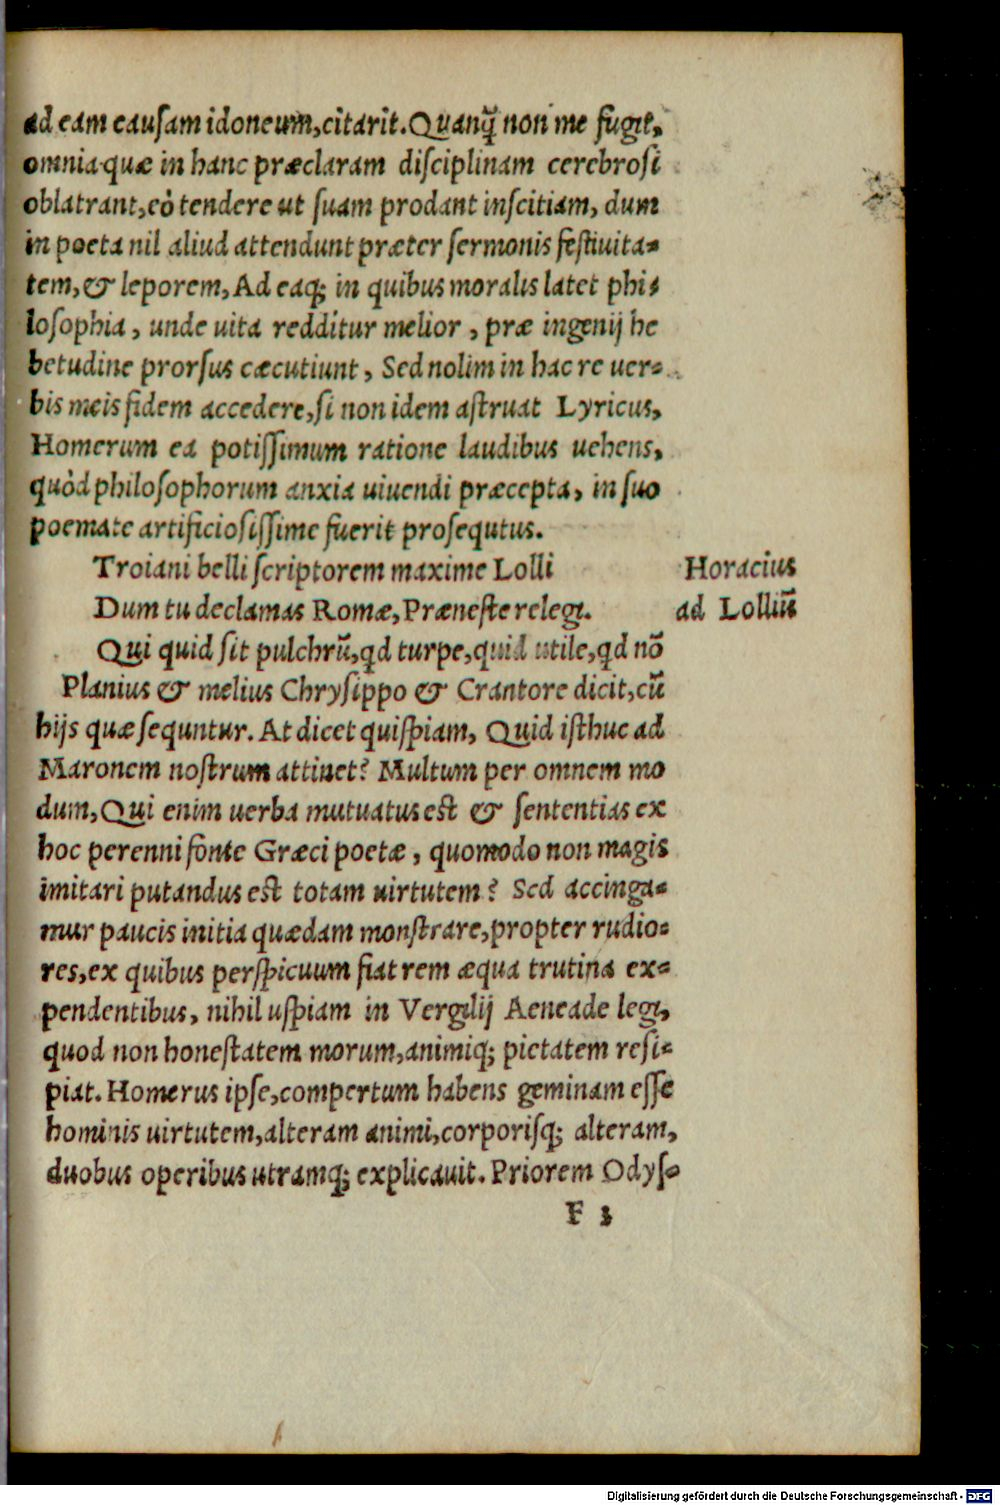 ad eam causam idoneum,citarit.Quanq̃ non me fugit,
omnia quæ in hanc præclaram disciplinam cerebrosi
oblatrant,eò tendere ut suam prodant inscitiam, dum
in poeta nil aliud attendunt præter sermonis festiuita-
tem,& leporem,Ad eaq; in quibus moralis latet phi-
losophia, unde uita redditur melior, præ ingenij he
betudine prorsus cæcutiunt, Sed nolim in hac re uer-
bis meis fidem accedere,si non idem astruat Lyricus,
Homerum ea potissimum ratione laudibus uehens,
quòd philosophorum anxia uiuendi præcepta, in suo
poemate artificiosissime fuerit prosequtus.
Troiani belli scriptorem maxime Lolli
Dum tu declamas Romæ,Præneste relegi.
Horacius
ad Lolliũ
Qui quid sit pulchrũ,qd turpe,quid utile,qd nõ
Planius & melius Chrysippo & Crantore dicit,cũ
hijs quæ sequntur. At dicet quispiam, Quid isthuc ad
Maronem nostrum attinet? Multum per omnem mo
dum,Qui enim uerba mutuatus est & sententias ex
hoc perenni fonte Græci poetæ, quomodo non magis
imitari putandus est totam uirtutem? Sed accinga-
mur paucis initia quædam monstrare,propter rudio-
res,ex quibus perspicuum fiat rem æqua trutina ex-
pendentibus, nihil uspiam in Vergilij Aeneade legi,
quod non honestatem morum,animiq; pietatem resi-
piat. Homerus ipse,compertum habens geminam esse
hominis uirtutem,alteram animi,corporisq; alteram,
duobus operibus utramq; explicauit. Priorem Odys-
F 3
Digitalisierung gefördert durch die Deutsche Forschungsgemeinschaft - DFG